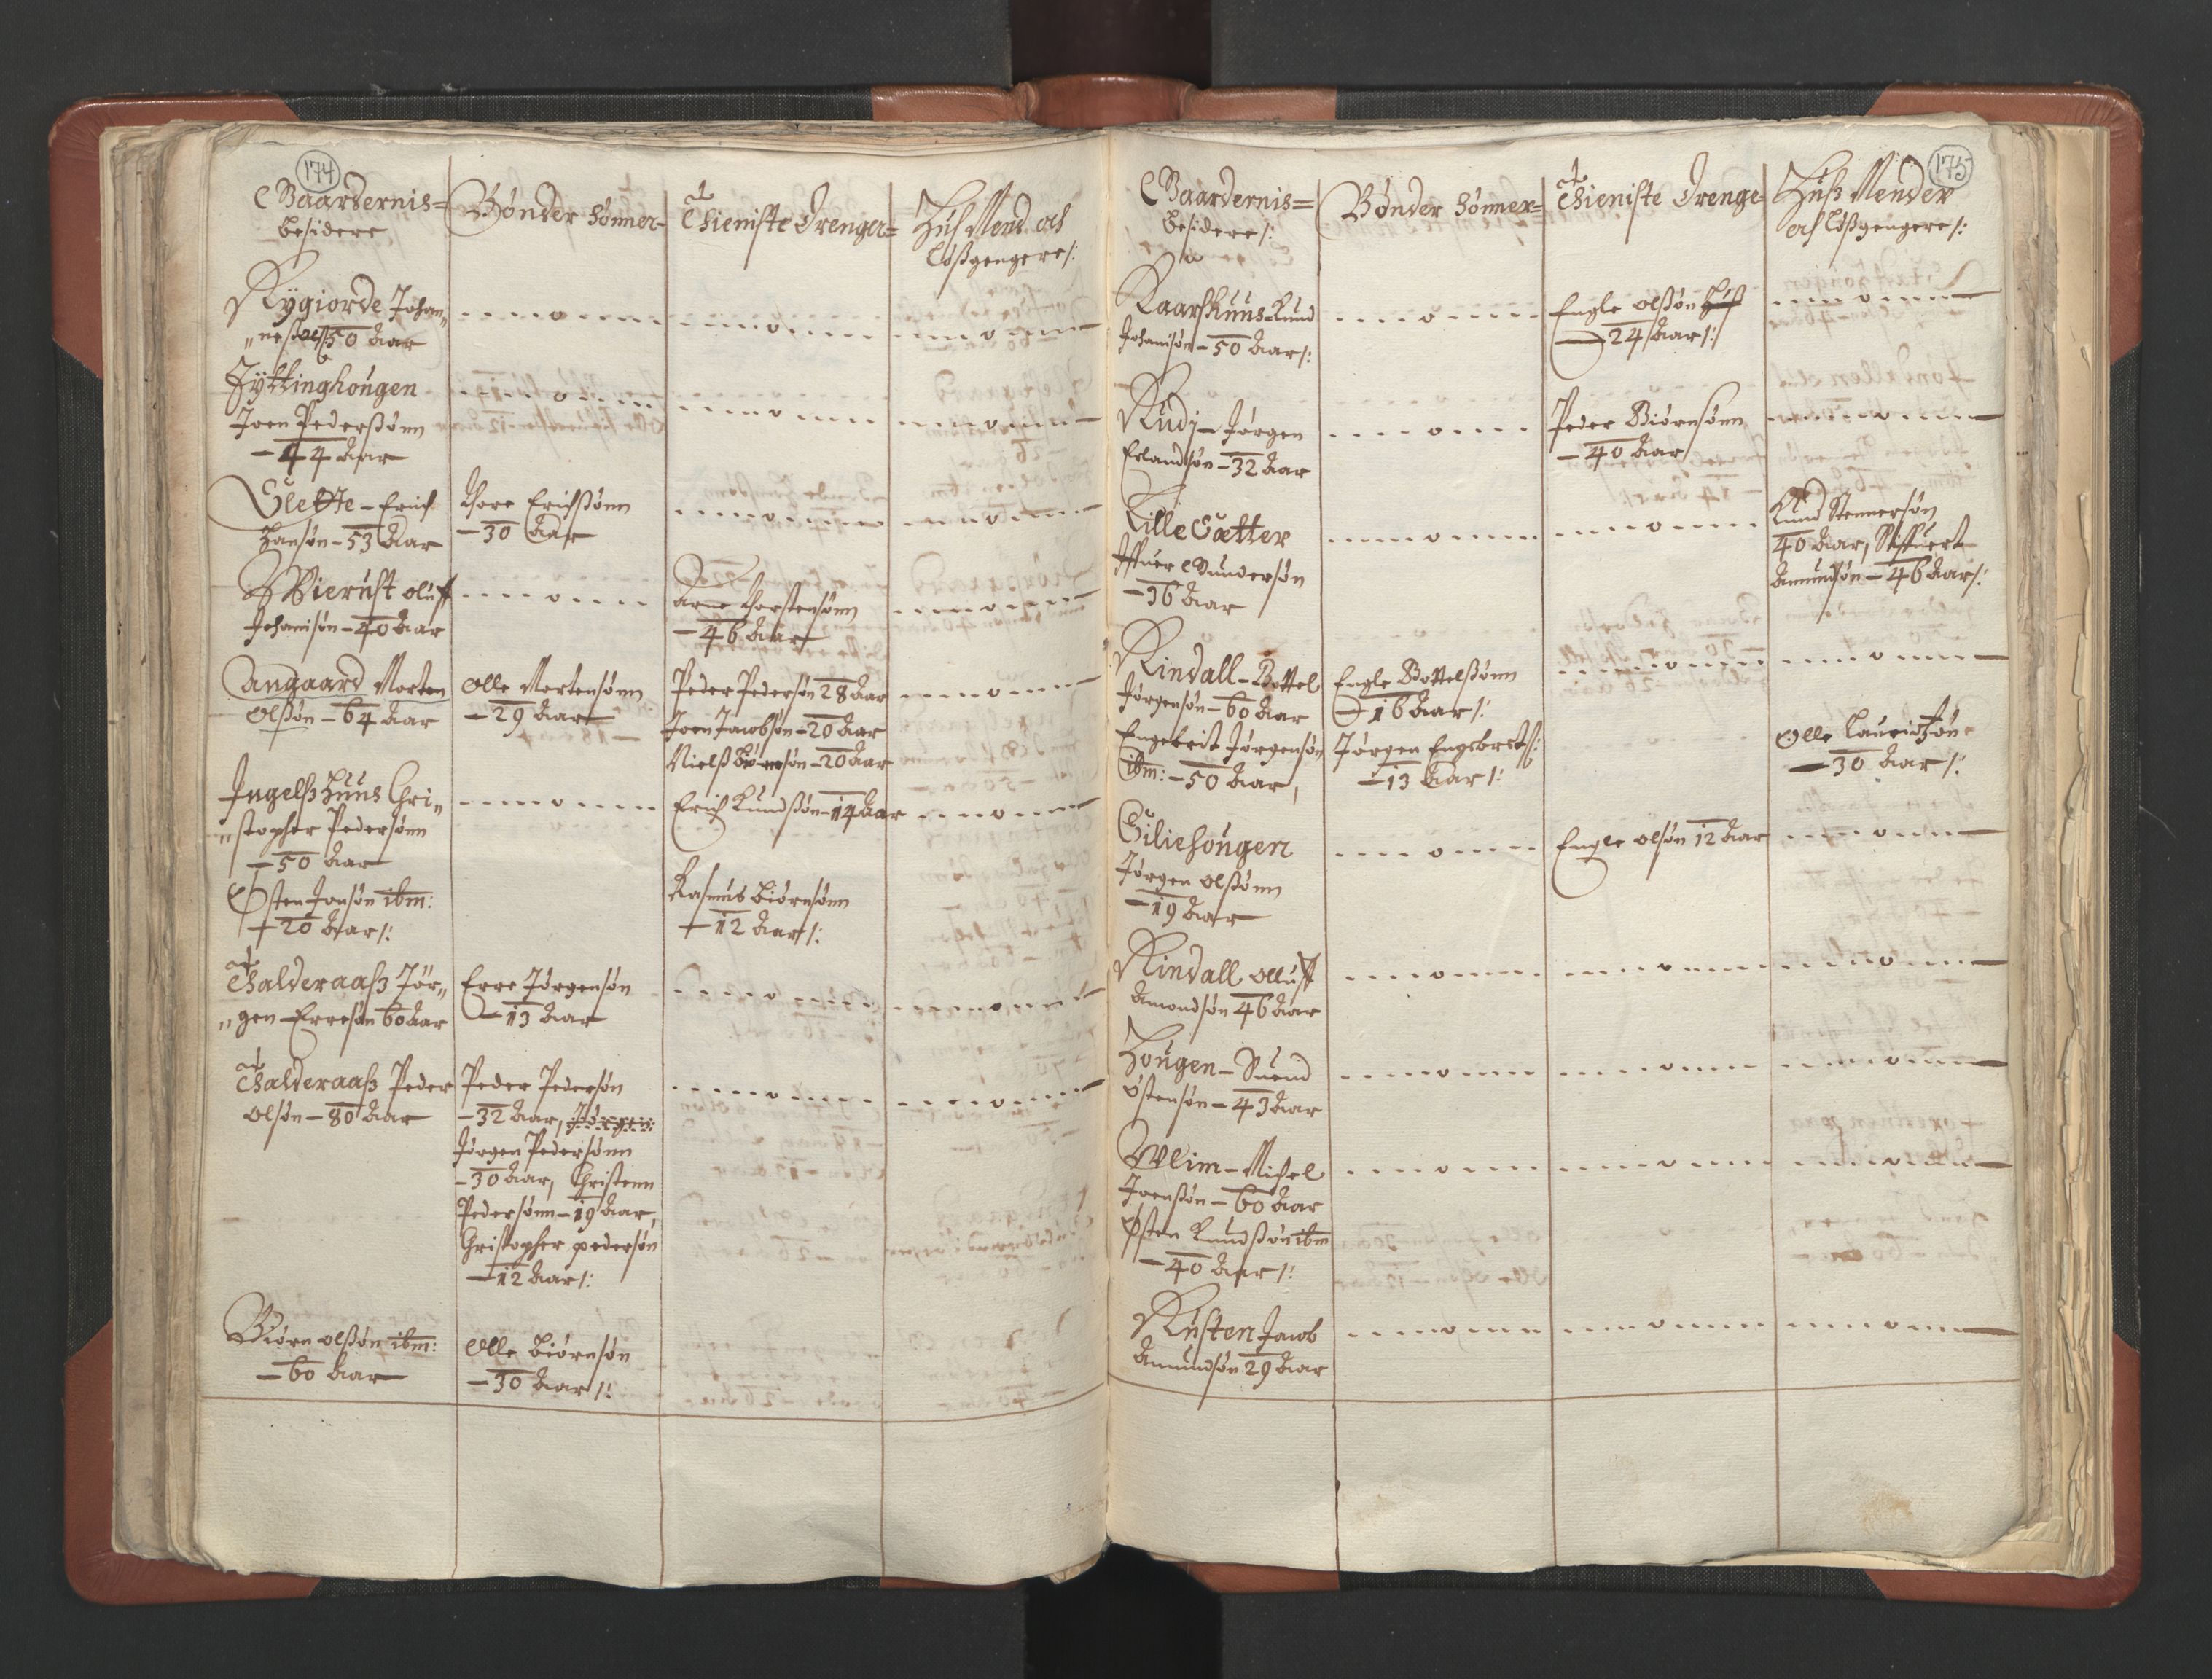 174
Gaardernis=
besidere
Bønder Sønner=
Thieniste Drenger=
Huus Mend och
Løßgengere /:
Rygiorde Johan„
„neß 50 Aar
Hyttinghougen
Joen Pederßønn
— 44 Aar
Slette — Erich
Hansøn — 53 Aar
Thore Erichßønn
— 30 Aar
Wierust oluff
Johanisøn — 40 Aar
Arne Thorstensønn
— 46 Aar
Angaard Morten
Olßøn — 64 Aar
Olle Mortensønn
— 29 Aar
Peder Pedersøn 28 Aar
Joen Jacobsøn — 20 Aar
Nielß Biørnsøn — 20 Aar
Ingelß Huus Chri„
„stopher Pedersønn
— 50 Aar
Erich Knudßøn — 14 Aar
Østen Jonsøn ibm:
— 20 Aar /:
Rasmus Biørnsønn
— 12 Aar /:
Thalderaaß Jør„
„gen Erresøn 60 Aar
Erre Jørgensøn
— 13 Aar
Thalderaaß Peder
Olsøn — 80 Aar
Peder Pedersøn
— 32 Aar, Jørgen
Jørgen Pedersønn
— 30 Aar, Christenn
Pedersønn — 19 Aar,
Christopher pedersøn
— 12 Aar /:
Biørn olßøn ibm:
— 60 Aar
Olle Biørnsøn
— 30 Aar /:
175
Gaardernis=
besidere /:
Bønder Sønner=
Thieniste Drenge=
Huß Mender
och Løßgengere /:
Kaarshuus — Knud
Johanisøn — 50 Aar /:
Engle olßøn
— 24 Aar /:
Rudj — Jørgen
Erlandsøn — 32 Aar
Peder Biørnsønn
— 40 Aar
Lille Sætter
Iffuer Gundersøn
— 36 Aar
Knud Stenersøn
40 Aar,
Amundsøn — 46 Aar /:
Rindall — Bottel
Jørgensøn — 60 Aar
Engle Bottelßønn
— 16 Aar /:
Engebrit Jørgensøn
ibm: — 50 Aar,
Jørgen Engebrets:
— 13 Aar /:
Olle Lauridzøn
— 30 Aar /:
Siliehougen
Jørgen olßønn
— 19 Aar
Engle olsøn 12 Aar
Rindall olluff
Amondsøn 46 Aar
Hougen — Suend
Østensøn — 43 Aar
Wlim — Michel
Joenßøn — 60 Aar
Østen Knudßøn ibm
— 40 Aar /:
Rusten Jacob
Amundsøn 29 Aar